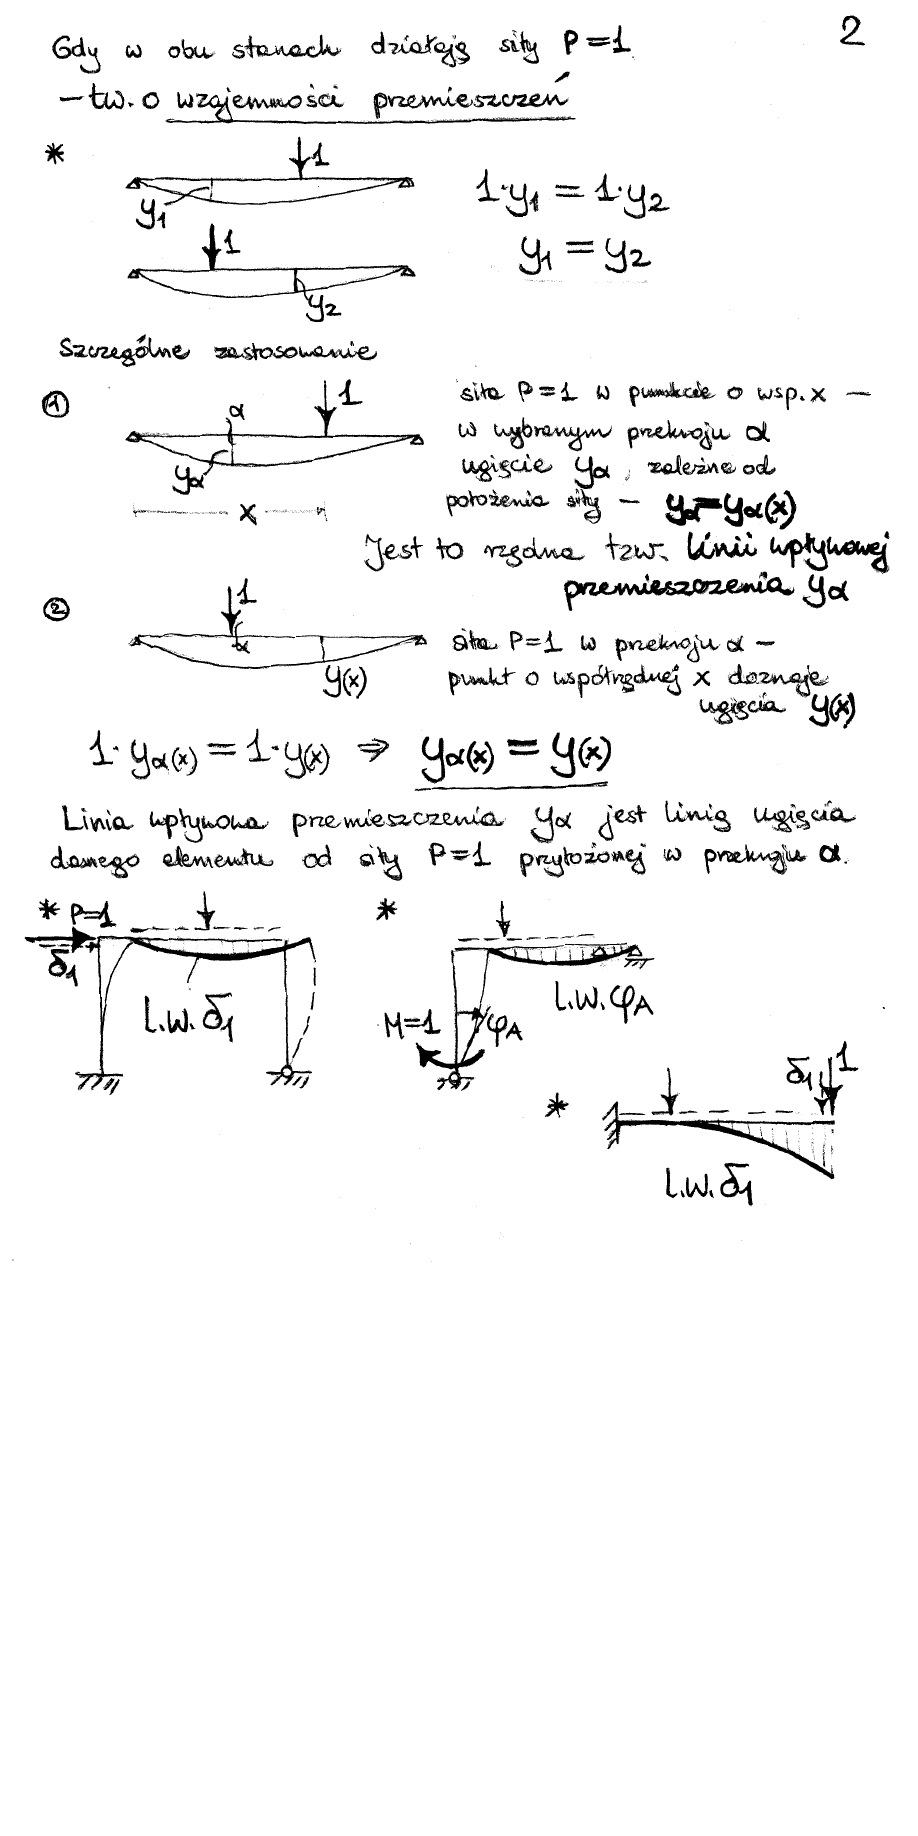 2
Gdy w obu stanach działają siły P=1
– tw. o wzajemności przemieszczeń
*
1
y1
1·y1 = 1·y2
1
y1 = y2
y2
Szczególne zastosowanie
①
1
α
yα
x
siła P=1 w punkcie o wsp. x –
w wybranym przekroju α
ugięcie yα, zależne od
położenia siły – yα=yα(x)
Jest to rzędna tzw. linii wpływowej
przemieszczenia yα
②
1
α
y(x)
siła P=1 w przekroju α –
punkt o współrzędnej x doznaje
ugięcia y(x)
1·yα(x) = 1·y(x) ⇒ yα(x) = y(x)
Linia wpływowa przemieszczenia yα jest linią ugięcia
danego elementu od siły P=1 przyłożonej w przekroju α.
* P=1
δ1
l.w. δ1
*
l.w. φA
M=1
φA
*
δ1
1
l.w. δ1